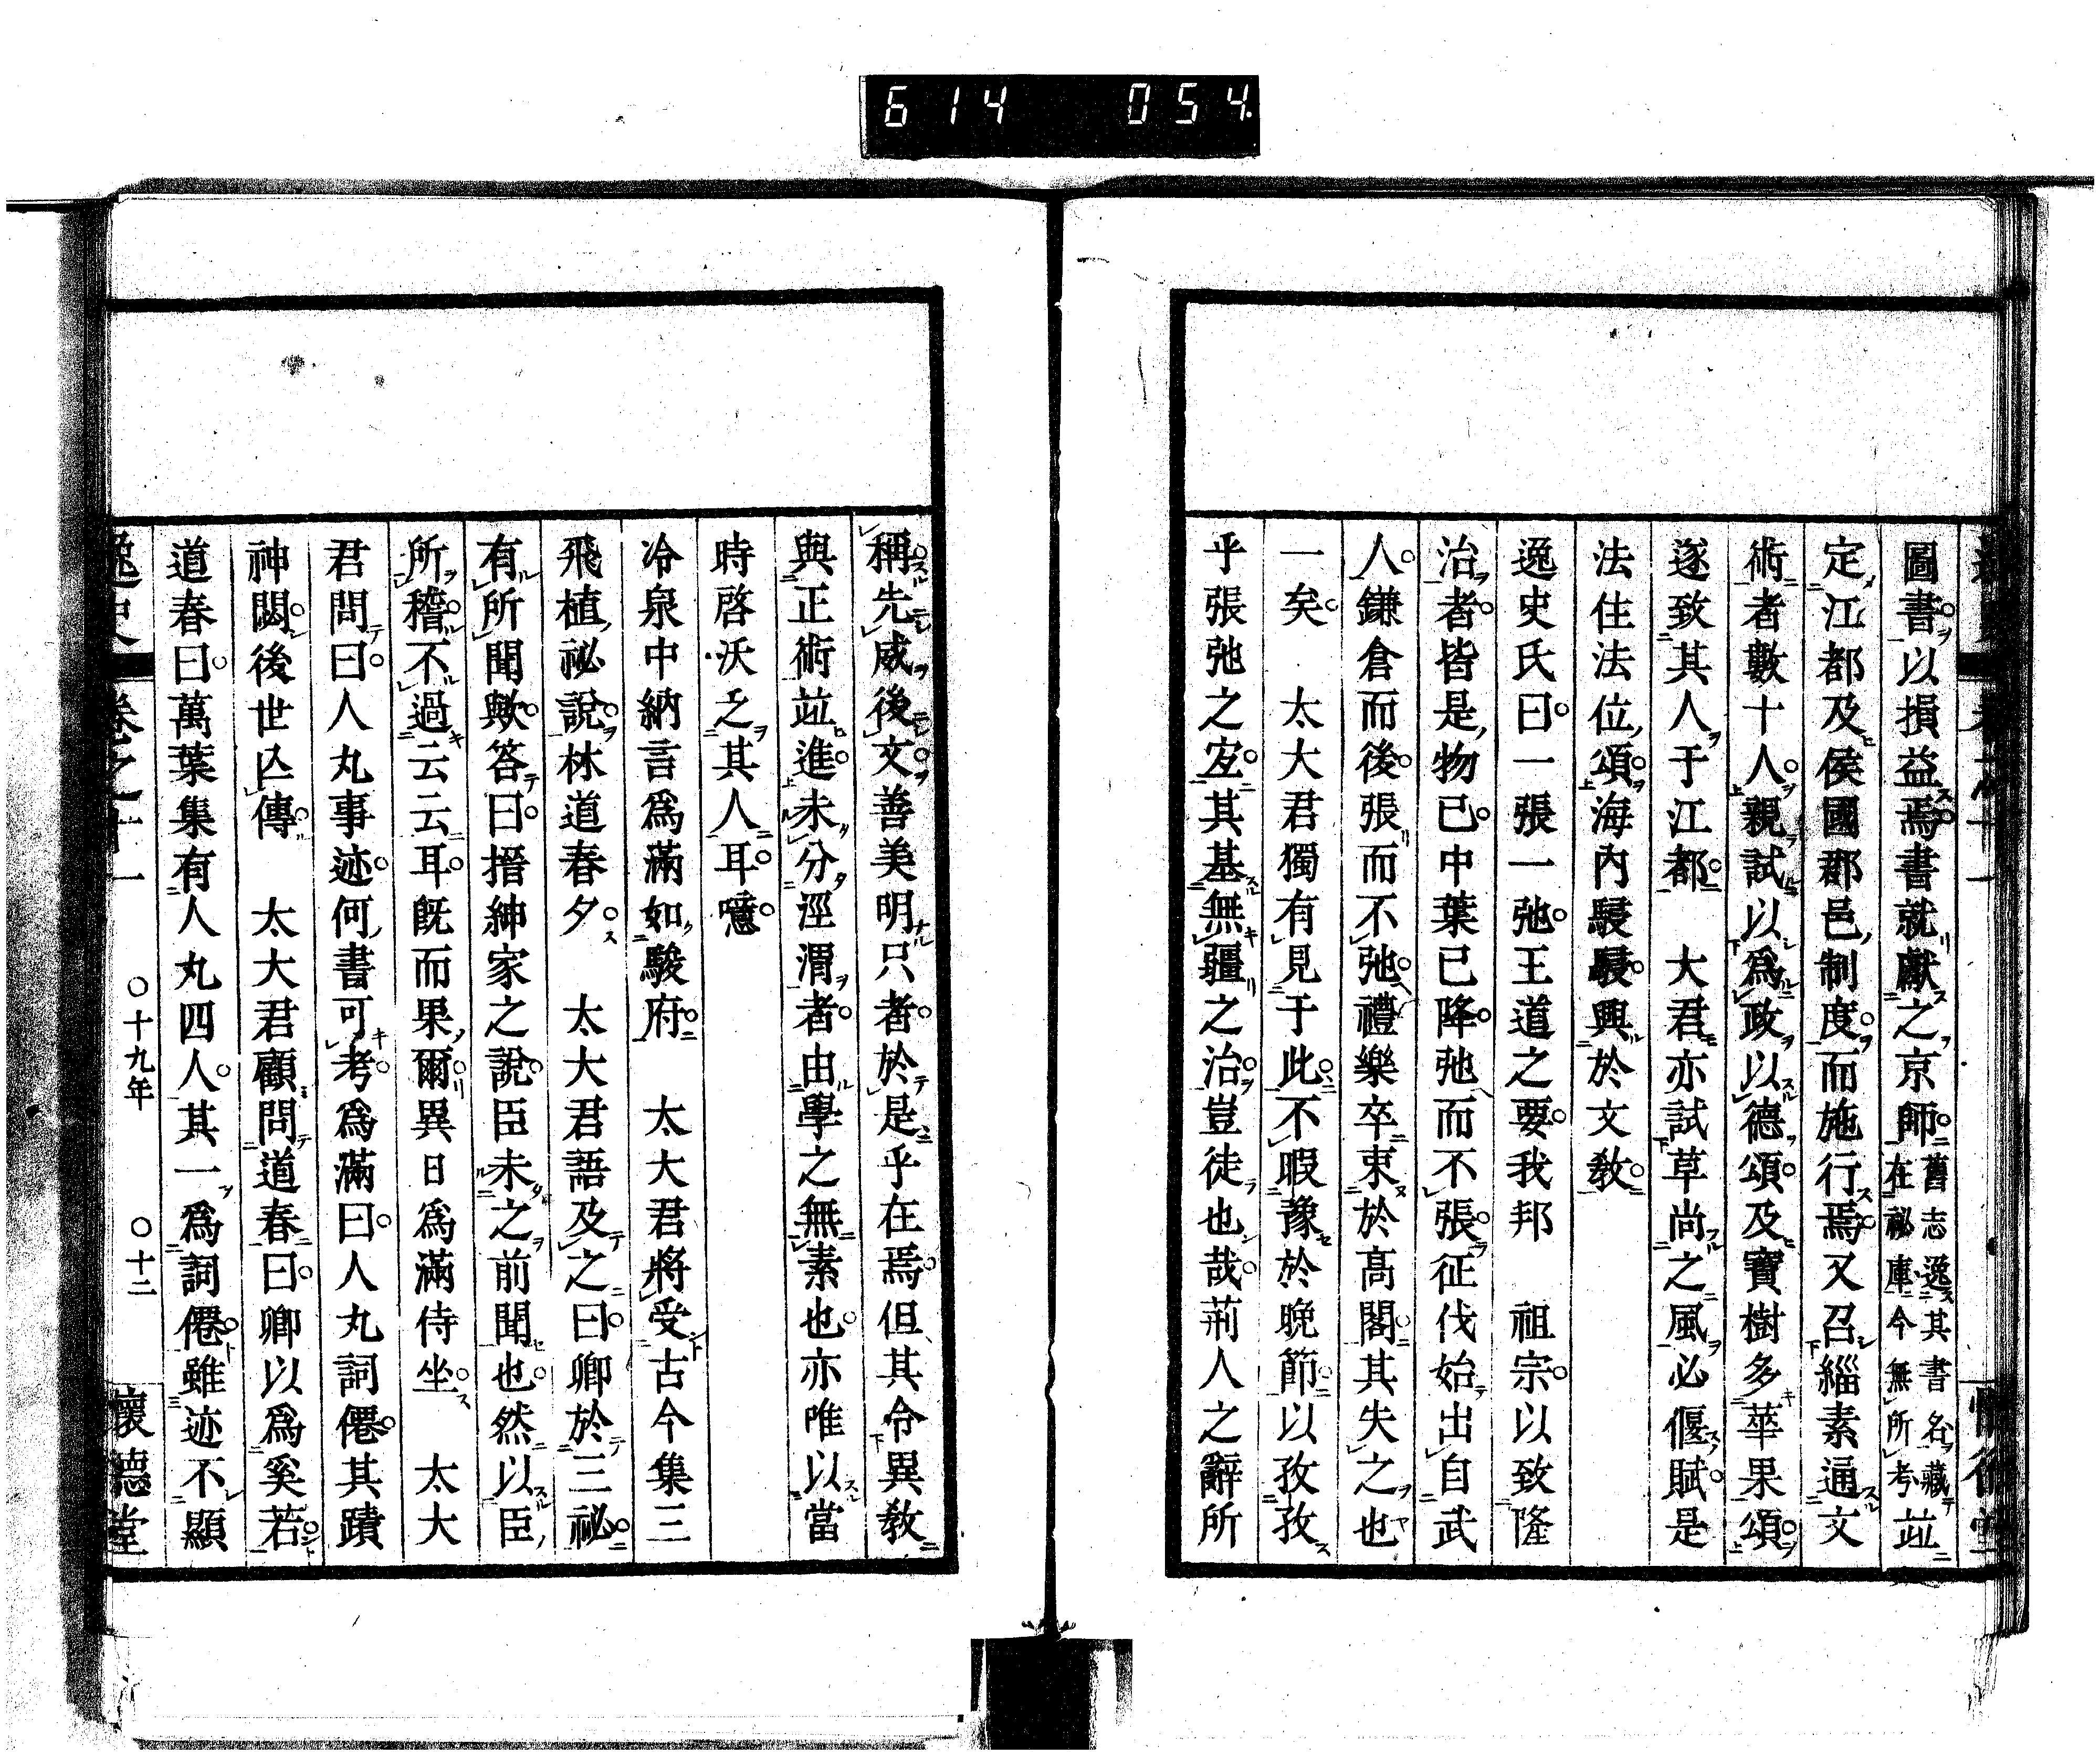 614 054.
圖書以損益焉書就獻之京師舊志逸其書名藏在祕庫今無所考竝
定江都及侯國郡邑制度而施行焉又召緇素通文
術者數十人親試以爲政以德頌及寶樹多華果頌
遂致其人于江都　大君亦試草尚之風必偃賦是
法住法位頌海內駸駸興於文教
逸史氏曰一張一弛王道之要我邦　祖宗以致隆
治者皆是物已中葉已降弛而不張征伐始出自武
人鎌倉而後張而不弛禮樂卒束於髙閣其失之也
一矣　太大君獨有見于此不暇豫於晩節以孜孜
乎張弛之宜其基無疆之治豈徒也哉荊人之辭所
稱先威後文善美明只者於是乎在焉但其令異教
與正術竝進未分涇渭者由學之無素也亦唯以當
時啓沃之其人耳噫
冷泉中納言爲滿如駿府　太大君將受古今集三
飛植祕說林道春夕　太大君語及之曰卿於三祕
有所聞歟答曰搢紳家之說臣未之前聞也然以臣
所稽不過云云耳旣而果爾異日爲滿侍坐　太大
君問曰人丸事迹何書可考爲滿曰人丸詞僊其蹟
神閟後世亾傳　太大君顧問道春曰卿以爲奚若
道春曰萬葉集有人丸四人其一爲詞僊雖迹不顯
逸史　卷之十一　〇十九年　〇十二　懷德堂